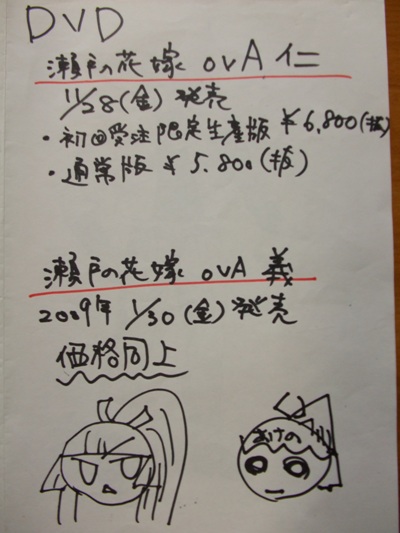 DVD
瀬戸の花嫁 OVA 仁
11/28(金)発売
・初回受注限定生産版 ¥6,800(抜)
・通常版 ¥5,800(抜)
瀬戸の花嫁 OVA 義
2009年 1/30(金)発売
価格同上
あけの